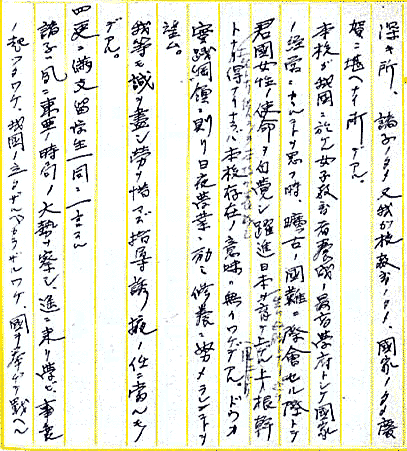 深キ所、諸子ノタメ又我ガ校教育ノタメ、国家ノタメ慶
賀ニ堪ヘナイ所デアル。
本校ガ我国ニ於ケル女子教育者養成ノ最高学府トシテ国家
ノ経営ニ カヽル 思フ時、曠古ノ国難ニ際会セル際
君国女性ノ使命ヲ自覚シ躍進日本ヲ背 上 根幹
トナル ナラ 本校存在ノ意味ハ無イワケデアル。ドウカ
実践綱領ニ則リ日夜学業ニ励ミ修養ニ努メラレントヲ
望ム。
我等モ誠ヲ盡シ労ヲ惜マズ指導誘掖ノ任ニ当ルモノ
デアル。
四、更ニ満支留学生一同ニ一言スル
諸子ハ凡ニ東亜ノ時局ノ大勢ヲ察シ遥ニ来リ学ビ、事変
ノ起ツタワケ、我国ノ立タザルベカラザルワケ、国ヲ挙ゲテ戦ヘル